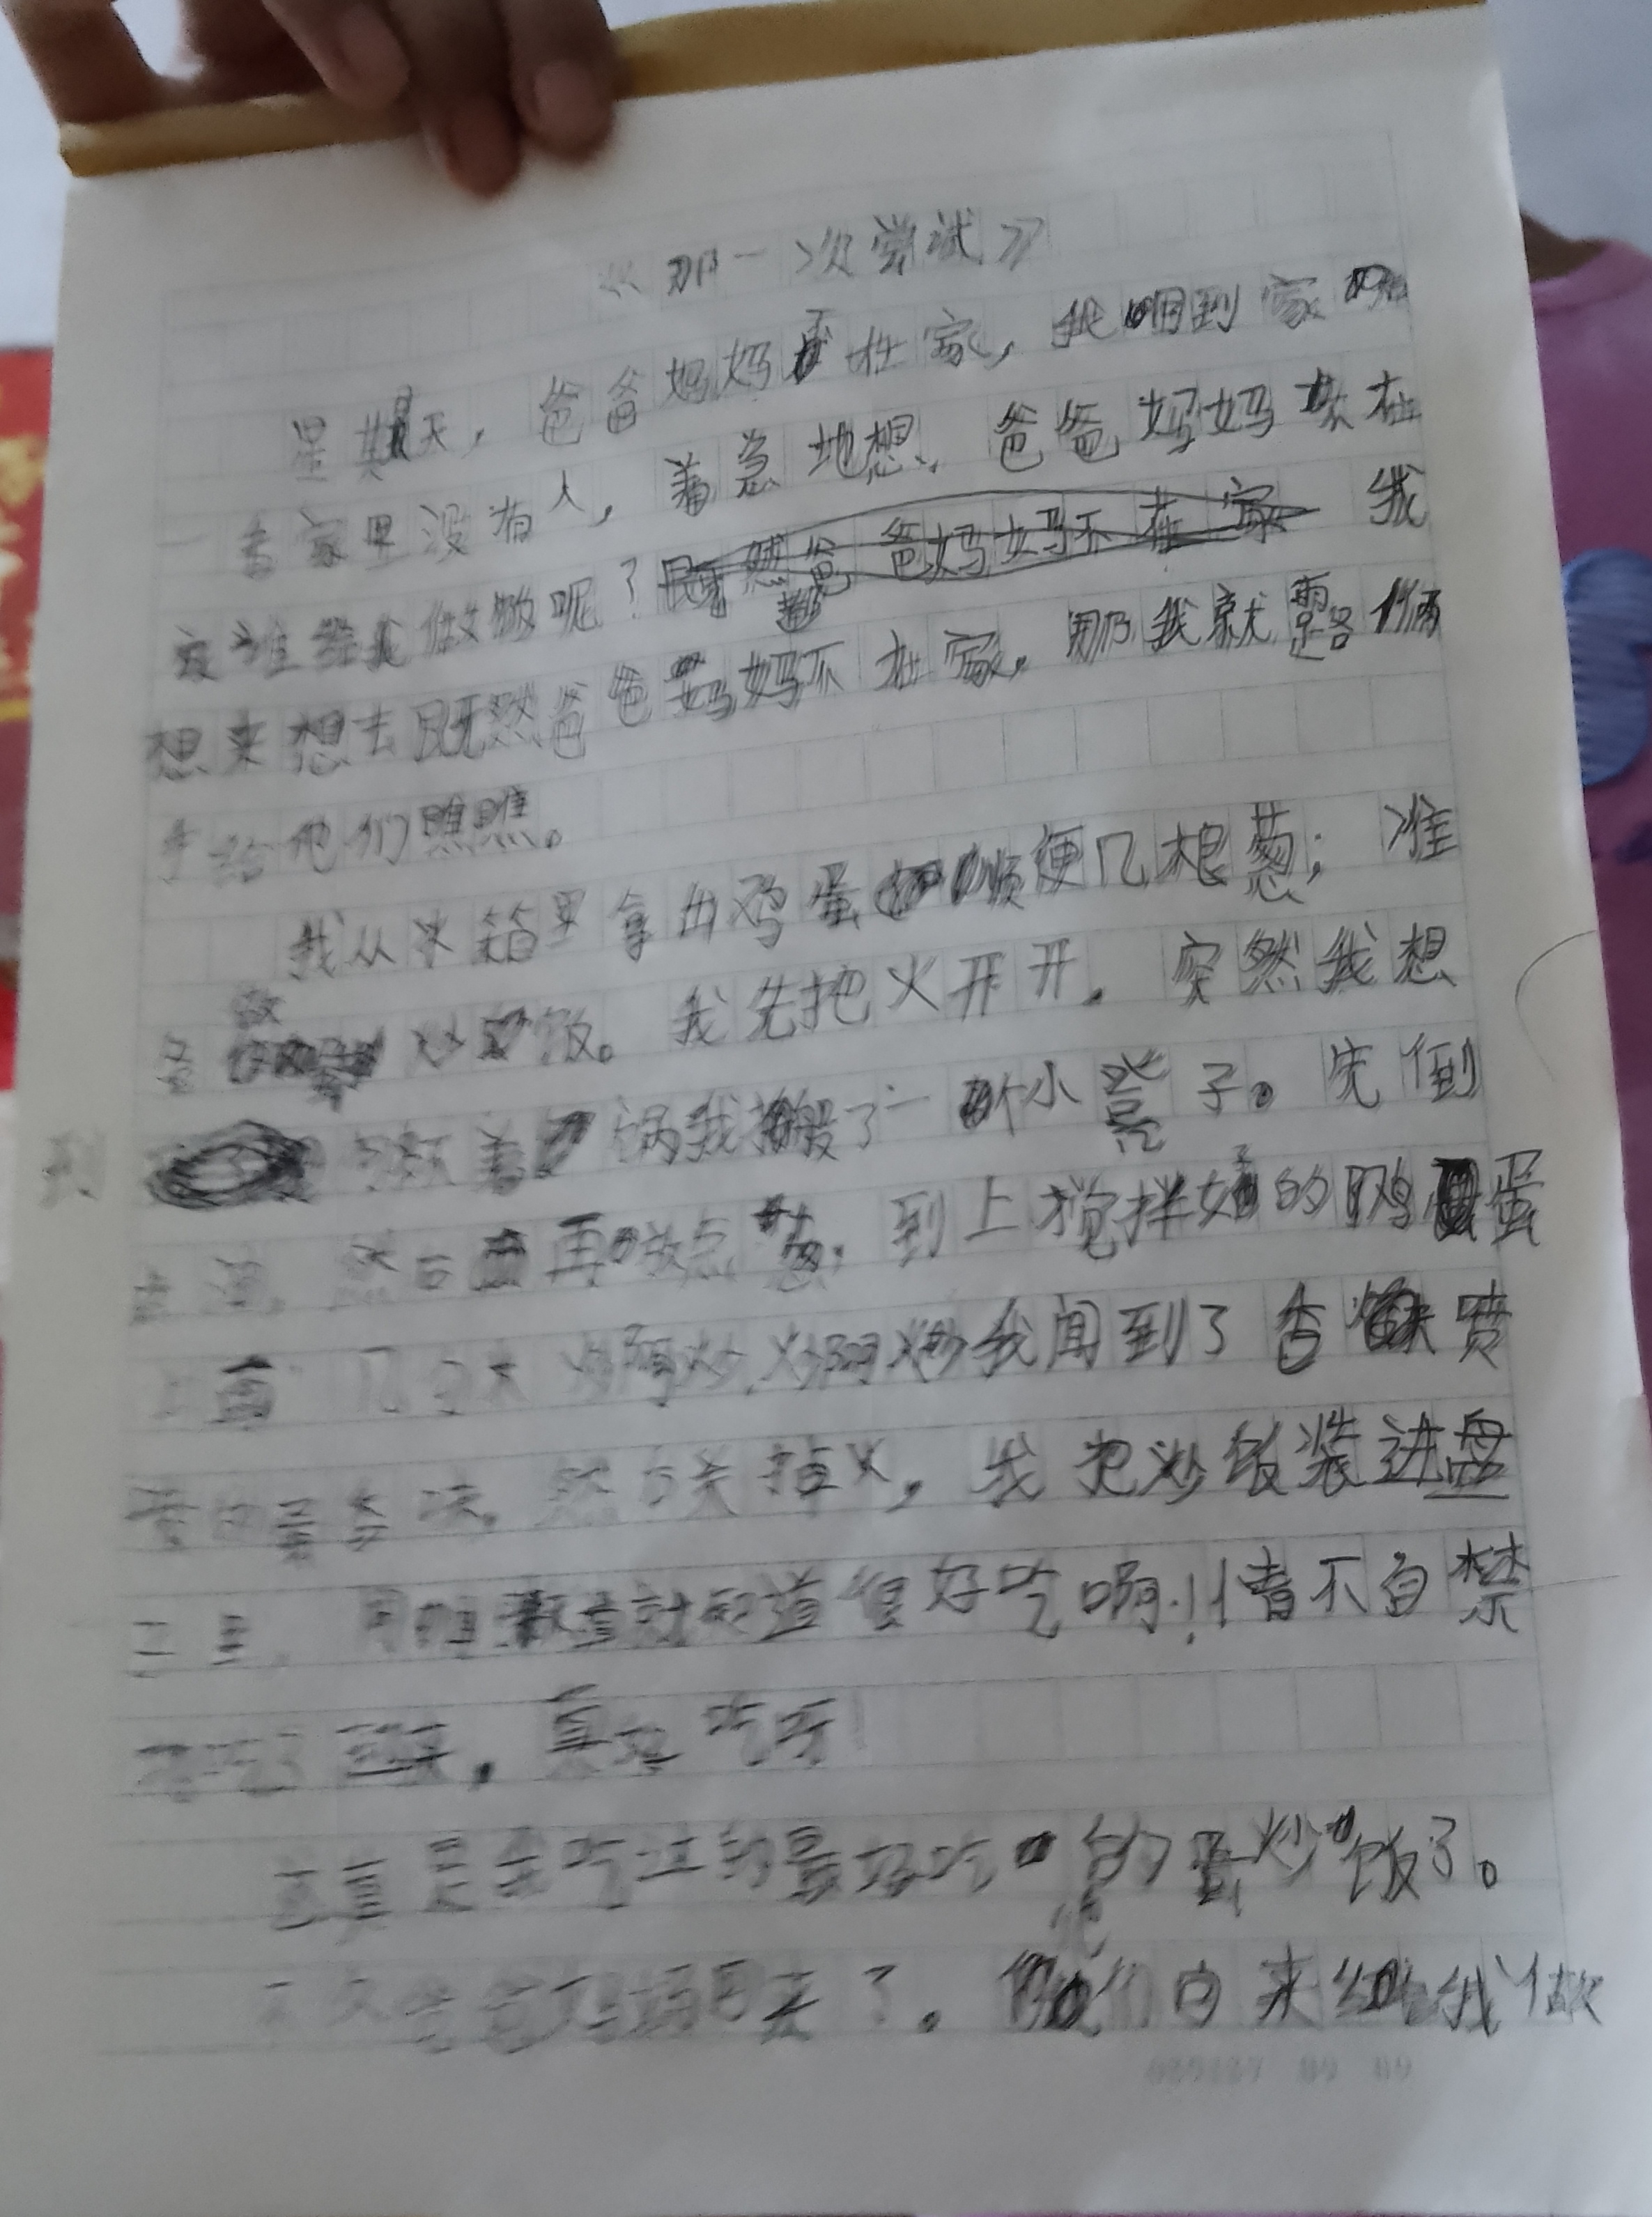 《那一次尝试》
星期天，爸爸妈妈不在家，我回到家
一看家里没有人，着急地想，爸爸妈妈不在
家谁给我做饭呢？我
想来想去既然爸爸妈妈不在家，那我就露俩
手给他们瞧瞧。
我从冰箱里拿出鸡蛋顺便几根葱；准
备做炒饭。我先把火开开，突然我想
到 锅我搬了一个小凳子。先倒
然后再放点葱，到上搅拌好的鸡蛋
炒啊炒，炒啊炒我闻到了香喷
喷的 然后关掉火，我把炒饭装进盘
就知道很好吃啊！情不自禁
真好吃呀！
这真是我吃过的最好吃的蛋炒饭了。
不久爸爸妈妈回来了。他们向来给我做